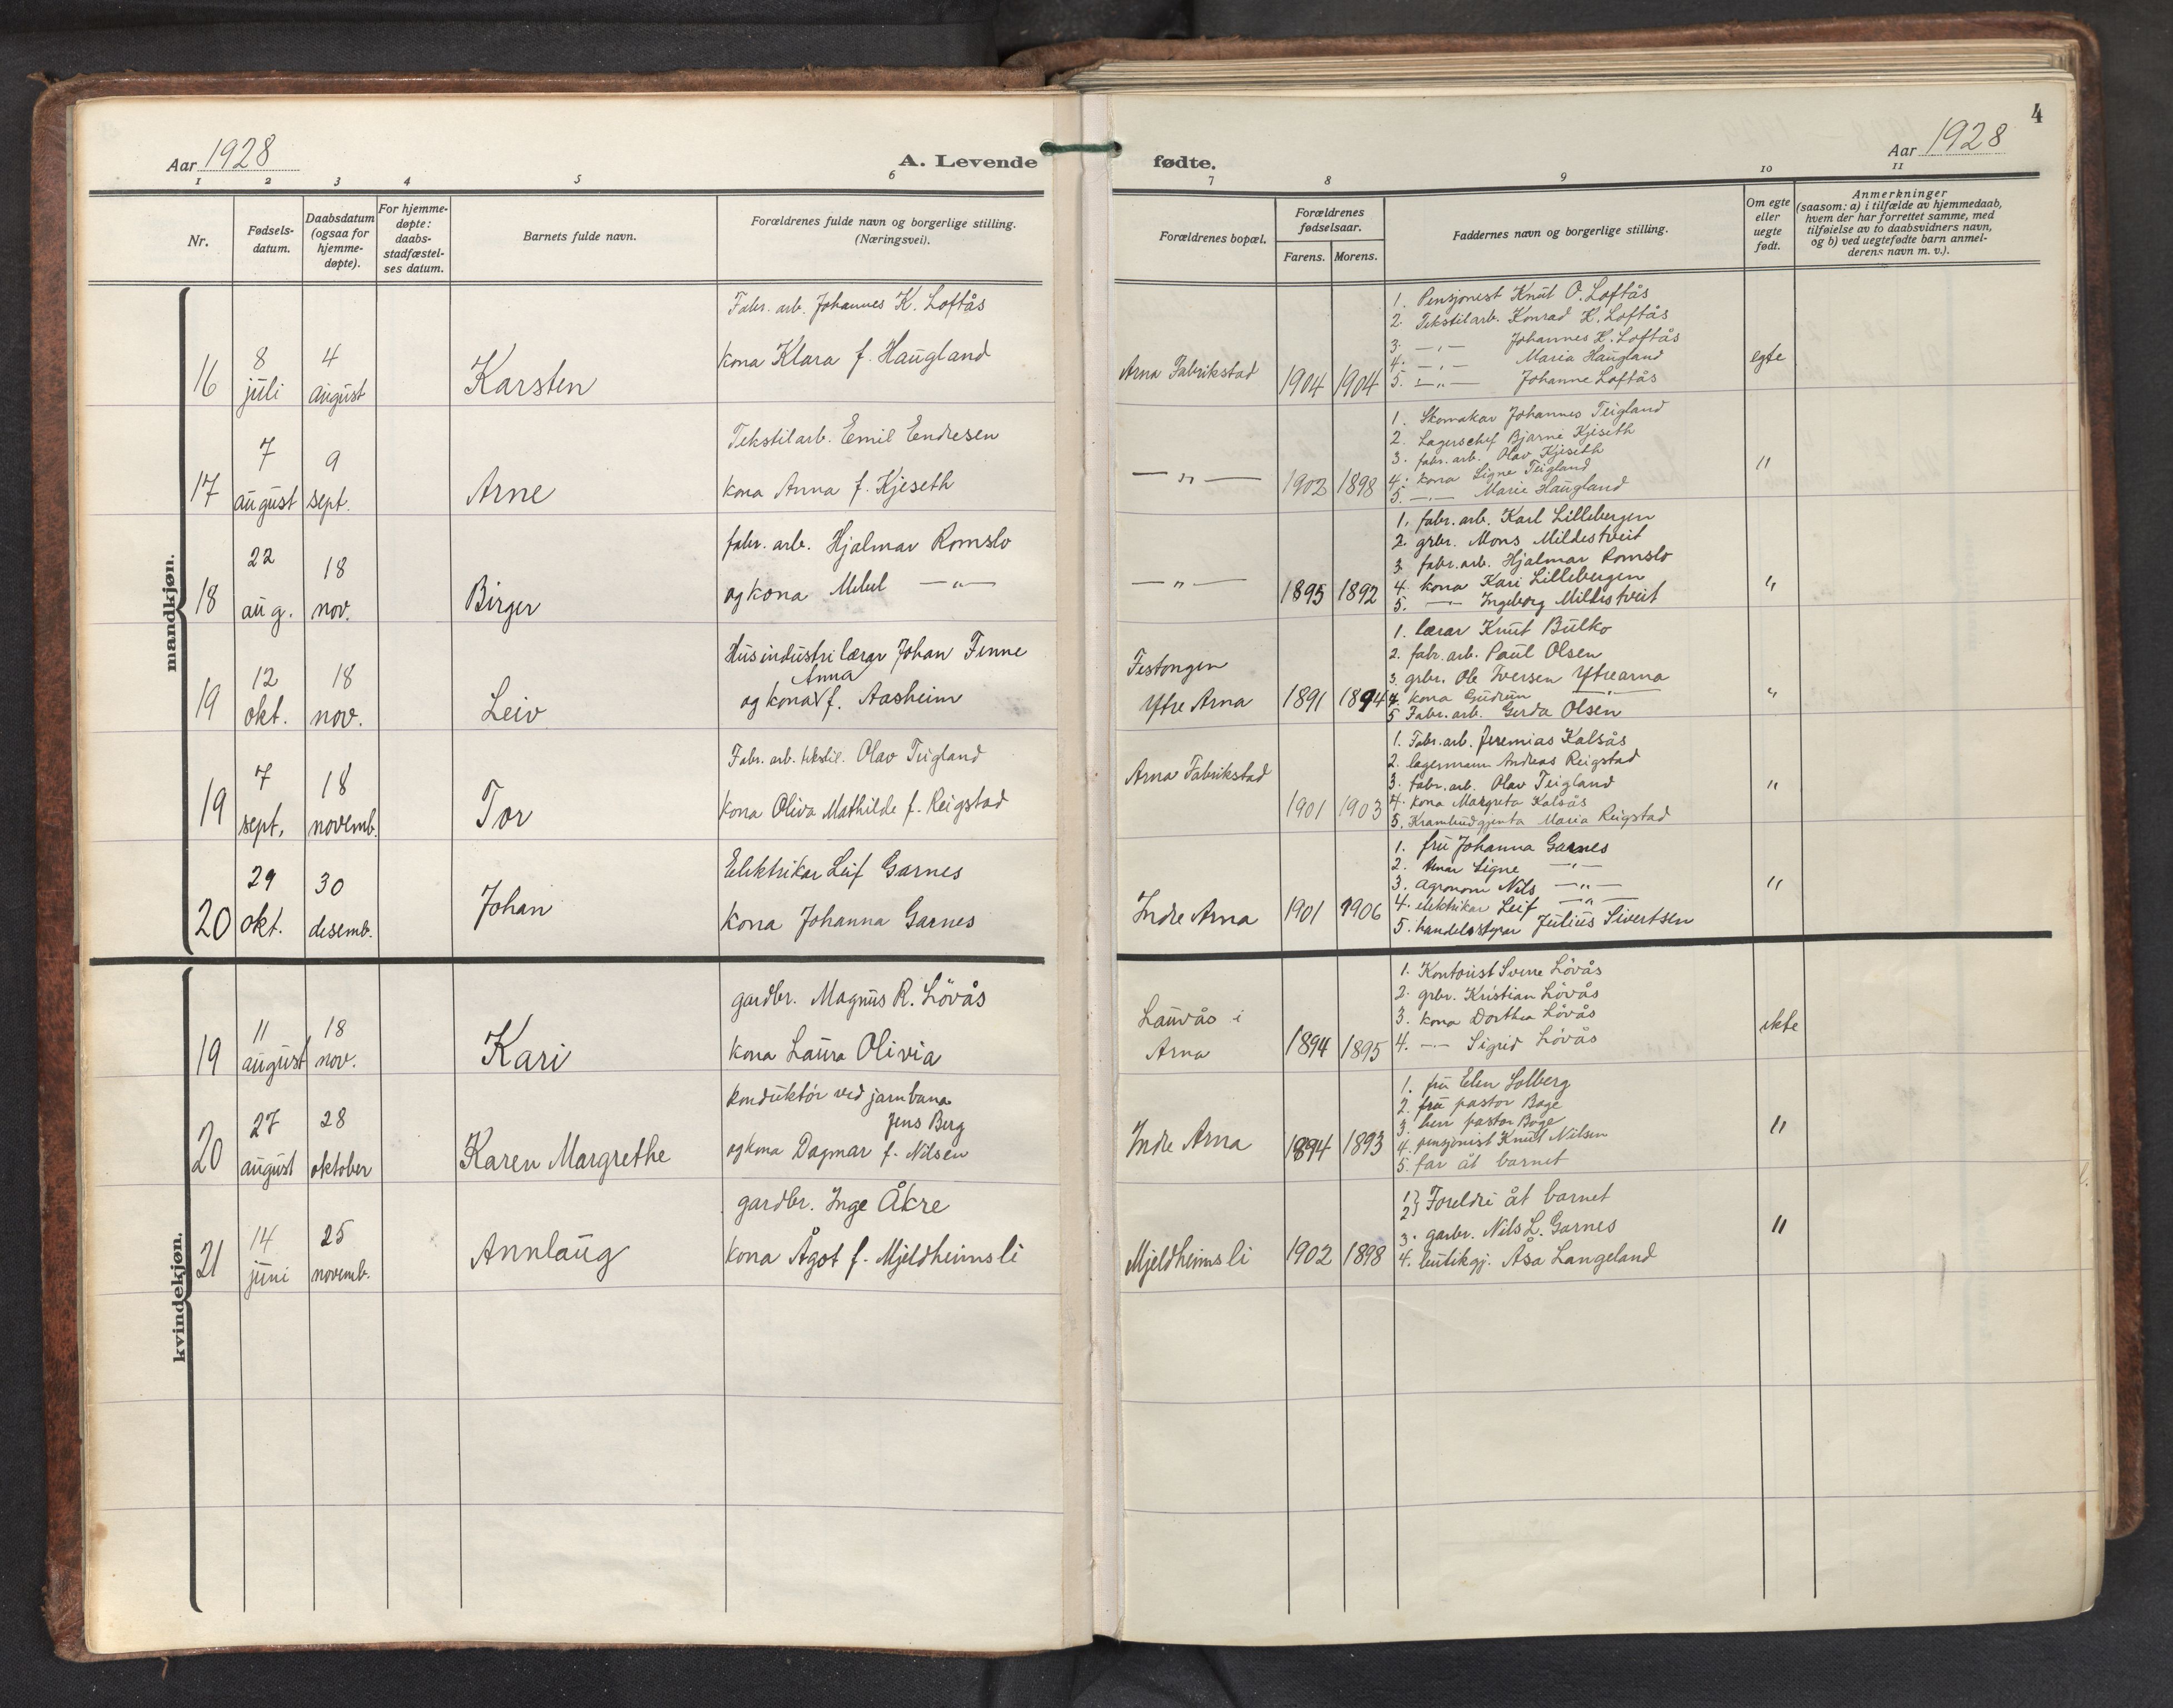 Aar 1928
A. Levende
1 2 3 4 5 6
Nr.
Fødsels-
datum.
Daabsdatum
(ogsaa for
hjemme-
døpte).
For hjemme-
døpte:
daabs-
stadfæstel-
ses datum.
Barnets fulde navn.
Forældrenes fulde navn og borgerlige stilling.
(Næringsvei).
mandkjøn.
16
8
juli
4
august
Karsten
Fabr. arb. Johannes K. Loftås
kona Klara f. Haugland
17
7
august
9
sept.
Arne
Tekstilarb. Emil Endresen
kona Anna f. Kjeseth
18
22
aug.
18
nov.
Birger
fabr. arb. Hjalmar Romslo
og kona — " —
19
12
okt.
18
nov.
Leiv
Husindustrilærar Johan Finne
Anna
og kona f. Aasheim
19
7
sept.
18
novemb.
Tor
Fabr. arb. tekstil. Olav Teigland
kona Oliva Mathilde f. Reigstad
20
29
okt.
30
desemb.
Johan
Elektrikar Leif Garnes
kona Johanna Garnes
kvindekjøn.
19
11
august
18
nov.
Kari
gardbr. Magnus R. Lövås
kona Laura Olivia
20
27
august
28
oktober
Karen Margrethe
konduktör ved jarnbana
Jens Berg
og kona Dagmar f. Nilsen
21
14
juni
25
novemb.
Annlaug
gardbr. Inge Åkre
kona Ågot f. Mjeldheimsli
4
fødte.
Aar 1928
7 8 9 10 11
Forældrenes bopæl.
Forældrenes
fødselsaar.
Farens. Morens.
Faddernes navn og borgerlige stilling.
Om egte
eller
uegte
født.
Anmerkninger
(saasom: a) i tilfælde av hjemmedaab,
hvem der har forrettet samme, med
tilføielse av to daabsvidners navn,
og b) ved uegtefødte barn anmel-
derens navn m. v.).
Arna Fabrikstad
1904 1904
1. Pensjonist Knut O. Loftås
2. Tekstilarb. Konrad K. Loftås
3. — " — Johannes K. Loftås
4. — " — Maria Haugland
5. — " — Johanne Loftås
egte
— " —
1902 1898
1. Skomakar Johannes Teigland
2. Lagerschef Bjarne Kjeseth
3. fabr. arb. Olav Kjeseth
4. kona Signe Teigland
5. — " — Marie Haugland
"
— " —
1895 1892
1. fabr. arb. Karl Lillebergen
2. grbr. Mons Mildestveit
3. fabr. arb. Hjalmar Romslo
4. kona Kari Lillebergen
5. — " — Ingeborg Mildestveit
"
Festongen
Ytre Arna
1891 1894
1. lærar Knut Bulko
2. fabr. arb. Paul Olsen
3. grbr. Ole Iversen Ytrearna
4. kona Gudrun — " —
5 Fabr. arb. Gerda Olsen
"
Arna Fabrikstad
1901 1903
1. Fabr. arb. Jeremias Kalsås
2. lagermann Andreas Reigstad
3. fabr. arb. Olav Teigland
4. kona Margreta Kalsås
5. Krambudgjenta Maria Reigstad
"
Indre Arna
1901 1906
1. fru Johanna Garnes
2. Signe — " —
3. Agronom Nils — " —
4. elektrikar Leif — " —
5. handelsstyrar Julius Sivertsen
"
Lauvås i
Arna
1894 1895
1. Kontorist Sverre Lövås
2. grbr. Kristian Lövås
3. kona Dorthea Lövås
4. — " — Sigrid Lövås
ekte
Indre Arna
1894 1893
1. fru Elen Solberg
2. fru pastor Bøge
3. herr pastor Bøge
4. pensjonist Knut Nilsen
5. far åt barnet
"
Mjeldheimsli
1902 1898
1 } Foreldri åt barnet
2 }
3. garbr. Nils L. Garnes
4. butikgj. Åsa Langeland
"